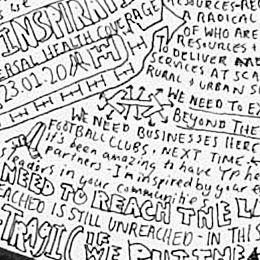 INSPIRATI
ERSAL HEALTH COVERAGE
23.01.20
RESOURCES-RE
A RADICAL
OF WHO ARE
RESOURCES +
TO DELIVER
SERVICES AT SCA
RURAL + URBAN S
WE NEED TO EX
BEYOND THE
WE NEED BUSINESSES HERE
FOOTBALL CLUBS, NEXT TIME
it's been amazing to have YP he
partners - I'm inspired by your e
leaders in your communities
NEED TO REACH THE LA
EACHED IS STILL UNREACHED - IN THIS
TRAGIC IF
WE PUT THE